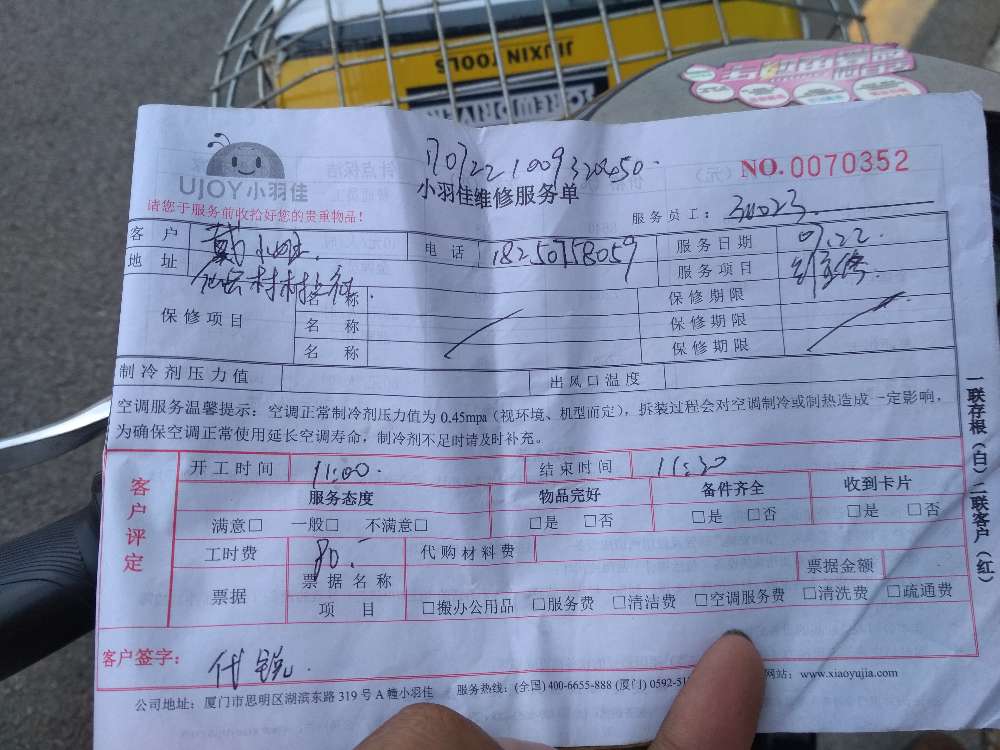 JIUXIN TOOLS
SCREWDRIVER
170722100932450.
NO.0070352
UJOY小羽佳
小羽佳维修服务单
请您于服务前收拾好您的贵重物品!
服务员工: 34023
客 户 戴小姐. 电 话 18250758059 服务日期 07.22.
地 址 仙岳村村 服务项目
保修项目
名 称 保修期限
名 称 保修期限
名 称 保修期限
制冷剂压力值 出风口温度
空调服务温馨提示:空调正常制冷剂压力值为 0.45mpa(视环境、机型而定),拆装过程会对空调制冷或制热造成一定影响,
为确保空调正常使用延长空调寿命,制冷剂不足时请及时补充。
一联存根(白)二联客户(红)
客户评定
开工时间 11:00. 结束时间 11:30
服务态度 物品完好 备件齐全 收到卡片
满意□ 一般□ 不满意□ □是 □否 □是 □否 □是 □否
工时费 80.- 代购材料费
票据 票据名称 票据金额
项 目 □搬办公用品 □服务费 □清洁费 □空调服务费 □清洗费 □疏通费
客户签字: 代锐.
公司地址:厦门市思明区湖滨东路 319 号 A 幢小羽佳 服务热线:(全国) 400-6655-888 (厦门) 0592-51 网站:www.xiaoyujia.com